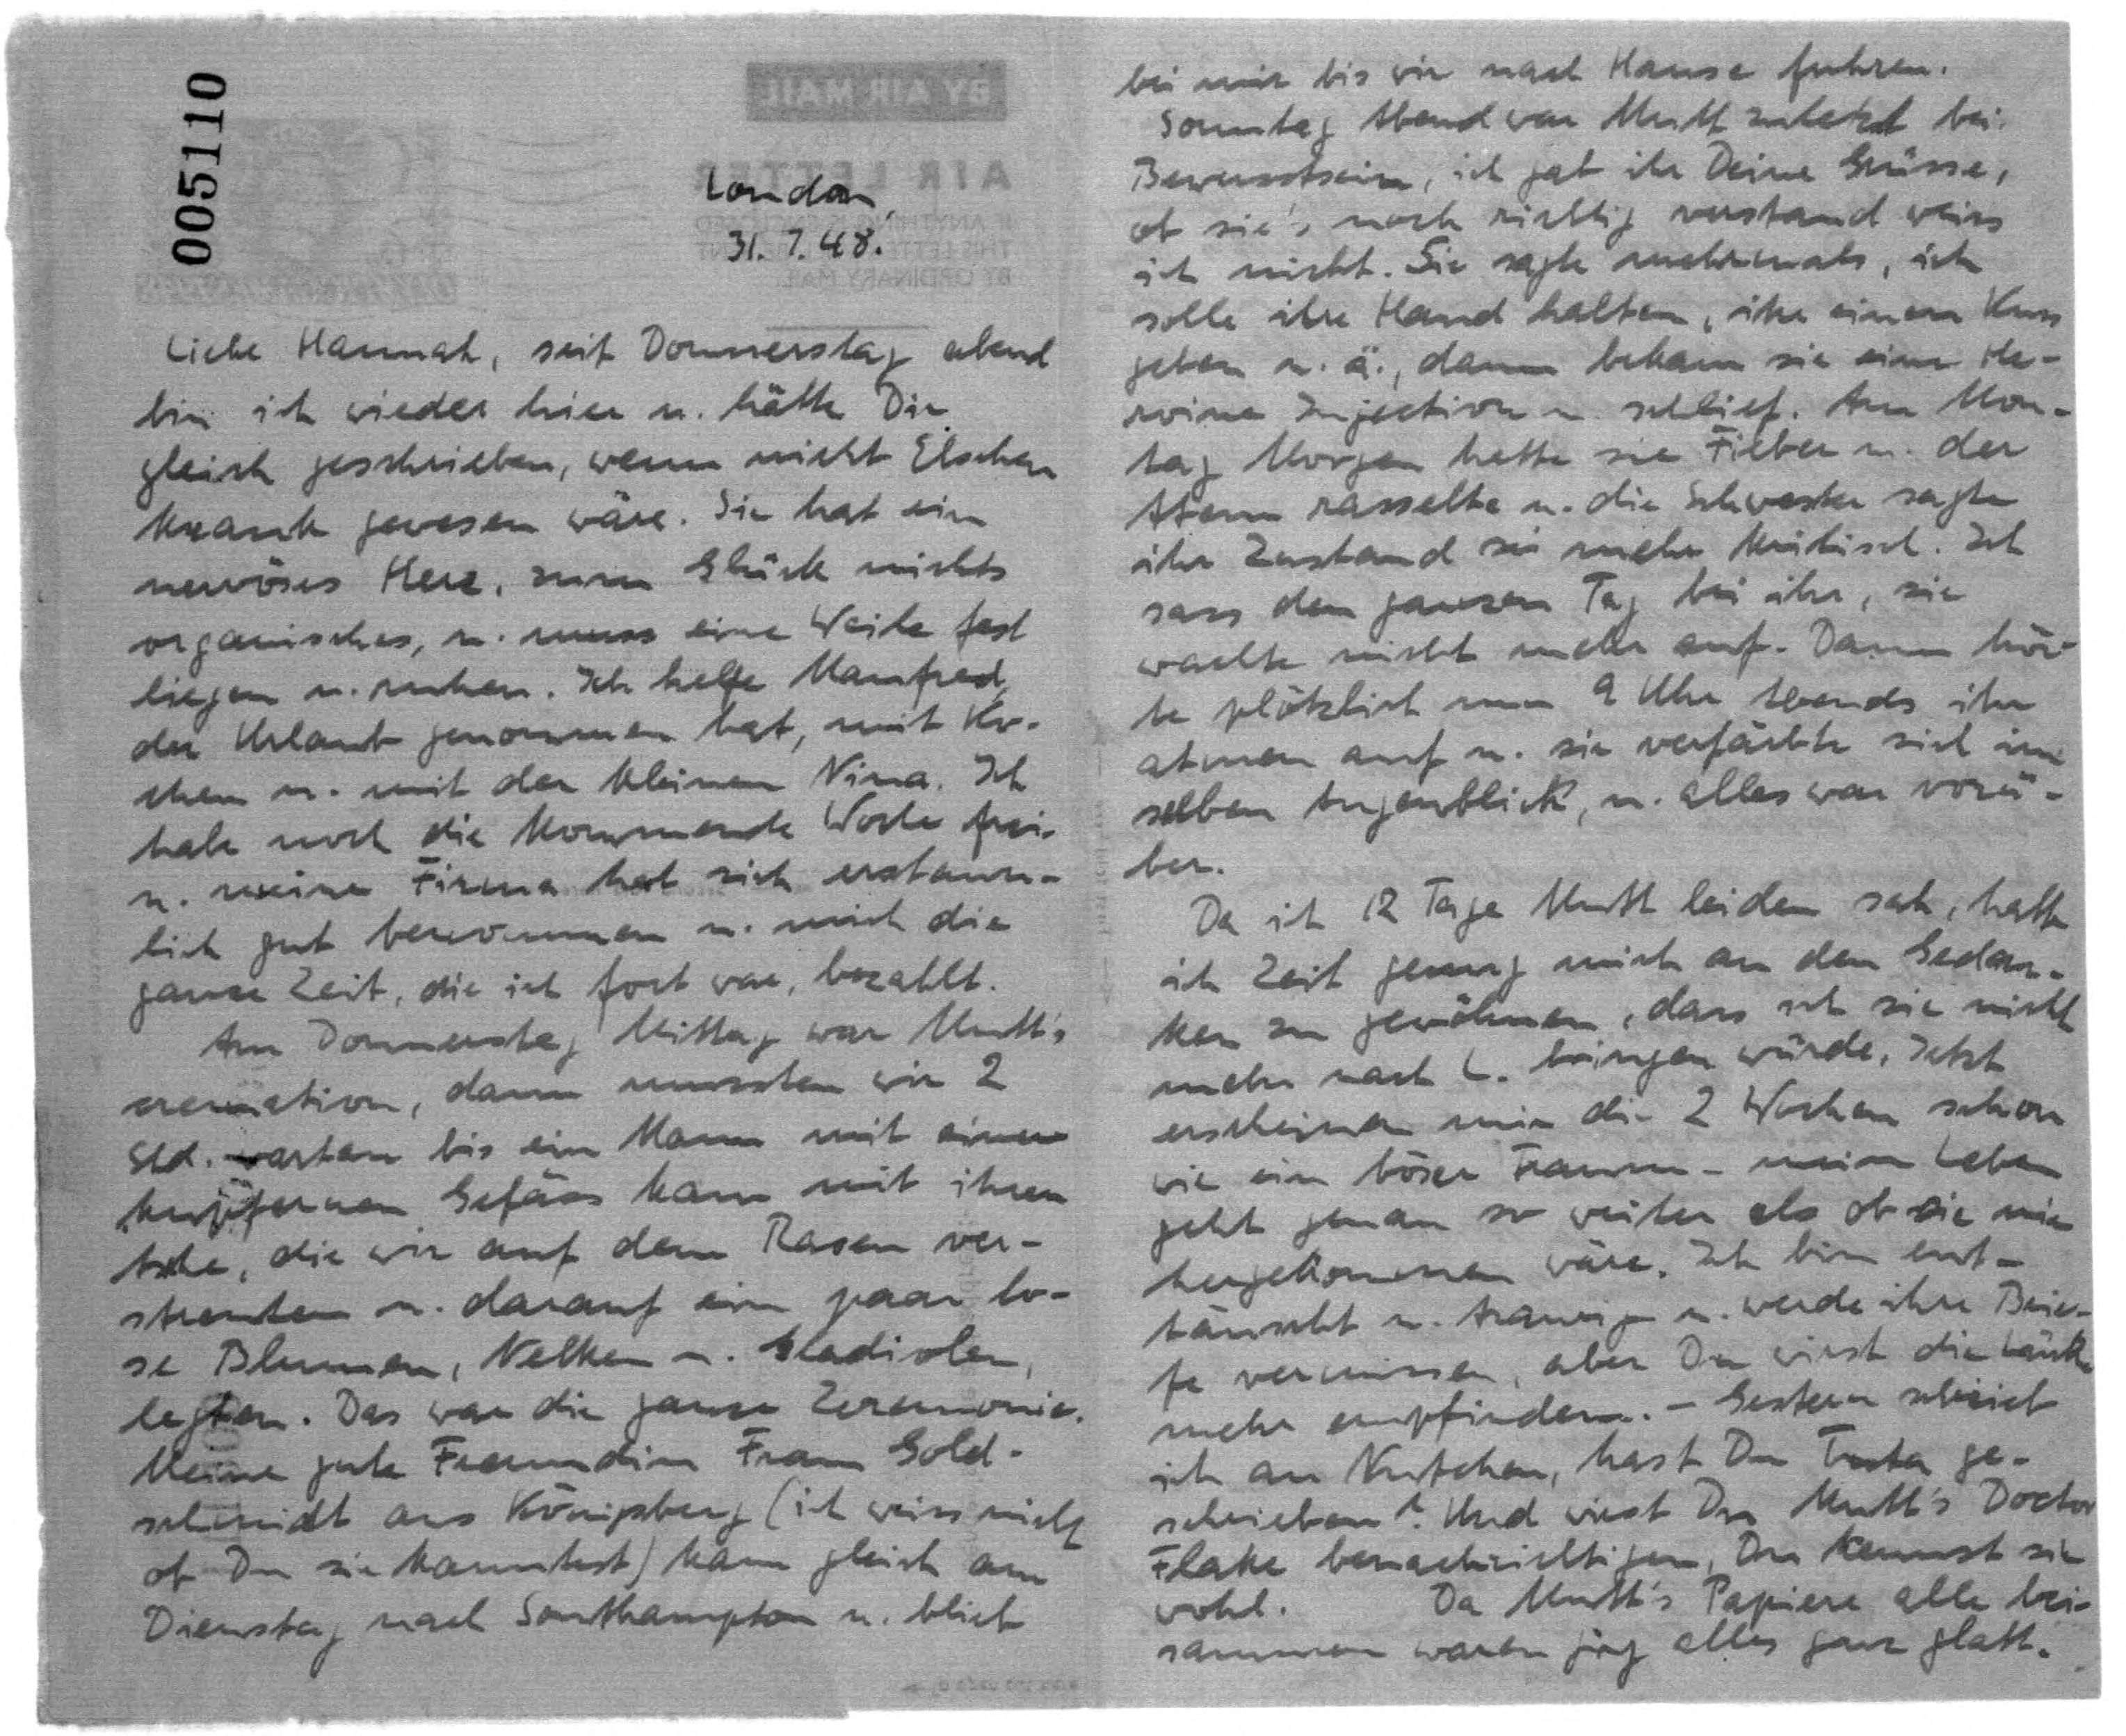 005110
BY AIR MAIL
AIR LETTER
IF ANYTHING IS ENCLOSED
THIS LETTER WILL BE SENT
BY ORDINARY MAIL
London,
31.7.48.
Liebe Hannah, seit Donnerstag abend
bin ich wieder hier u. hätte Dir
gleich geschrieben, wenn nicht Elschen
krank gewesen wäre. Sie hat ein
nervöses Herz, zum Glück nichts
organisches, u. muss eine Weile fest
liegen u. ruhen. Ich helfe Manfred,
der Urlaub genommen hat, mit Ko-
chen u. mit der kleinen Nina. Ich
habe noch die kommende Woche frei.
u. meine Firma hat sich erstaun-
lich gut benommen u. mich die
ganze Zeit, die ich fort war, bezahlt.
Am Donnerstag Mittag war Mutt's
cremation, dann mussten wir 2
Std. warten bis ein Mann mit einem
kupfernen Gefäss kam mit ihrer
Asche, die wir auf dem Rasen ver-
streuten u. darauf ein paar lo-
se Blumen, Nelken u. Gladiolen,
legten. Das war die ganze Zeremonie.
Meine gute Freundin Frau Gold-
schmidt aus Königsberg (ich weiss nicht
ob Du sie kanntest) kam gleich am
Dienstag nach Southampton u. blieb
bei mir bis wir nach Hause fuhren.
Sonntag Abend war Mutt zuletzt bei
Bewusstsein, ich gab ihr Deine Grüsse,
ob sie's noch richtig verstand weiss
ich nicht. Sie sagte mehrmals, ich
solle ihre Hand halten, ihr einen Kuss
geben u. ä., dann bekam sie eine He-
roine Injection u. schlief. Am Mon-
tag Morgen hatte sie Fieber u. der
Atem rasselte u. die Schwester sagte
ihr Zustand sei mehr kritisch. Ich
sass den ganzen Tag bei ihr, sie
wachte nicht mehr auf. Dann hör-
te plötzlich um 9 Uhr abends ihr
atmen auf u. sie verfärbte sich im
selben Augenblick, u. alles war vorü-
ber.
Da ich 12 Tage Mutt leiden sah, hatte
ich Zeit genug mich an den Gedan-
ken zu gewöhnen, dass ich sie nicht
mehr nach L. bringen würde. Jetzt
erscheinen mir die 2 Wochen schon
wie ein böser Traum - mein Leben
geht genau so weiter als ob sie nie
hergekommen wäre. Ich bin ent-
täuscht u. traurig u. werde ihre Brie-
fe vermissen, aber Du wirst die Lücke
mehr empfinden. - Gestern schrieb
ich an Nutchen, hast Du ge-
schrieben? Und wirst Du Mutt's Doctor
Flake benachrichtigen, Du kennst sie
wohl. Da Mutt's Papiere alle bei-
sammen waren ging alles ganz glatt.